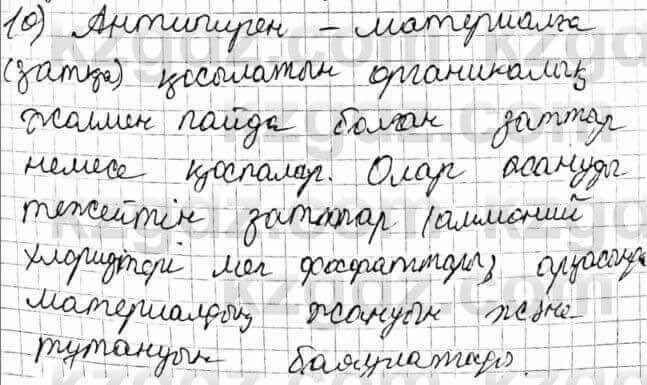 10) Антипирен – материалға
(затқа) қосылатын органикалық
жолмен пайда болған заттар
немесе қоспалар. Олар жануды
тежейтін заттар (аммоний
хлоридтері мен фосфаттары, арқасында
материалдың жануын және
тұтануын баяулатады.